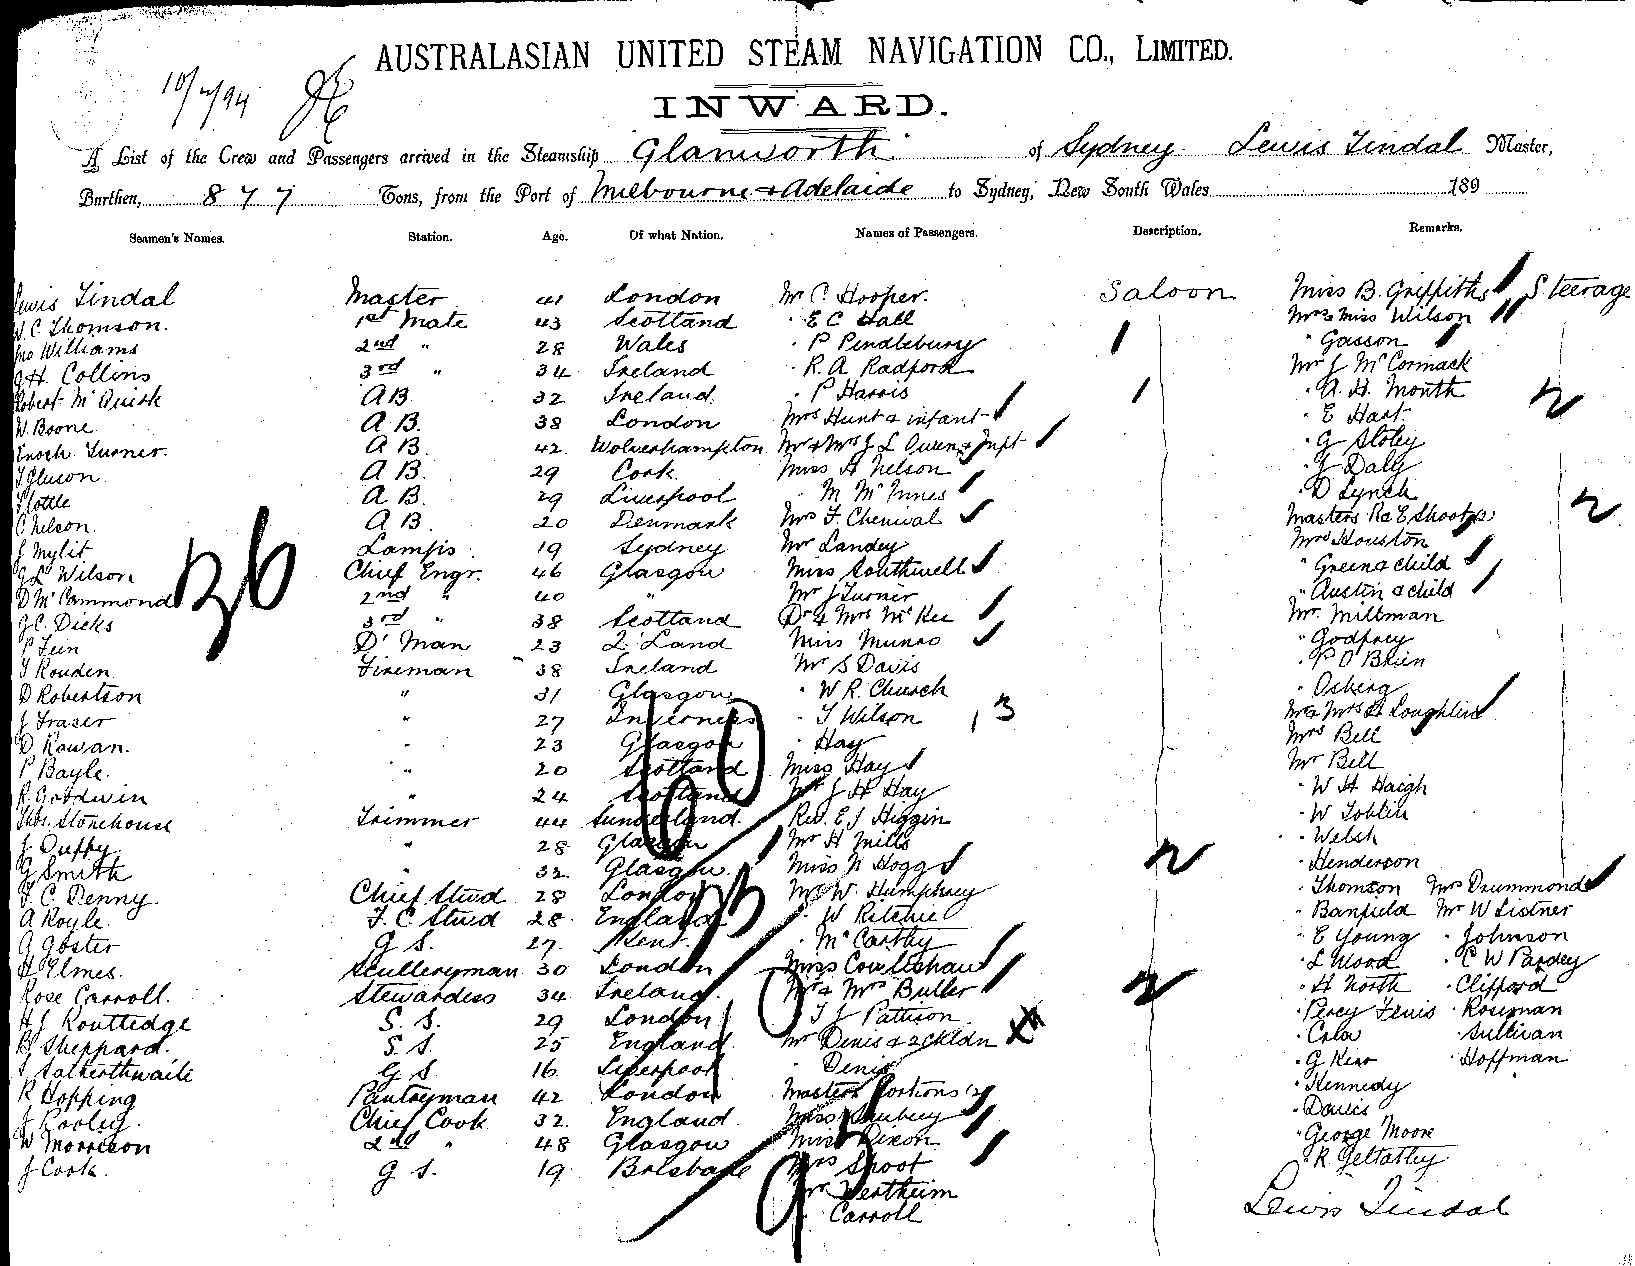 AUSTRALASIAN UNITED STEAM NAVIGATION CO., LIMITED.
10/7/94
INWARD.
A List of the Crew and Passengers arrived in the Steamship Glanworth of Sydney Lewis Tindal Master,
Burthen, 877 Tons, from the Port of Melbourne & Adelaide to Sydney, New South Wales 189
Seamen's Names. Station. Age. Of what Nation. Names of Passengers. Description. Remarks.
Lewis Tindal Master 41 London Mr C. Hooper. Saloon Miss B. Griffiths Steerage
W. C. Thomson. 1st Mate 43 Scotland " E C Hall Mr & Miss Wilson
Jno Williams 2nd " 28 Wales " P Pendlebury " Gasson
J H. Collins 3rd " 34 Ireland " R. A Radford Mr J McCormack
Robert McQuirk AB 32 Ireland. " P Harris " A. H. Month
W. Boone A B. 38 London Mrs Hunt & infant " E Hart
Enoch Turner. A B. 42 Wolverhampton Mr & Mrs J L Owen & Inft " G Stoley
T Gleeson A B. 29 Cork Miss A Nelson " J Daly
A B. 29 Liverpool " M McInnes " D Lynch
C Nelson. A B. 20 Denmark Mrs F. Chenival Masters R & E Shoot (2)
J Mylit Lamps 19 Sydney Mr Landey Mrs Houston
G L Wilson Chief Engr. 46 Glasgow Miss Southwell " Green & child
D McCammond 2nd " 40 " Mr J Turner " Austin & child
J C. Dicks 3rd " 38 Scotland Dr & Mrs McKee Mr. Miltman
P Fein D' Man 23 Q'Land Miss Munro " Godfrey
T Rouden Fireman 38 Ireland Mr S Davis " P O'Brien
D Robertson " 31 Glasgow " W R. Church " Osking
J Fraser " 27 Inverness " T Wilson 13 Mr & Mrs H Loughlin
D Rowan. " 23 Glasgow " Hay Mrs Bell
P Bayle. " 20 Scotland Miss Hay Mr Bell
R. Goodwin " 24 Scotland Mr J H Hay " W H Haigh
Thos. Stonehouse Trimmer 44 Sunderland. Rev. E J Higgin " W Toblin
J Duffy " 28 Glasgow Mr H Mills " Welsh
G Smith " 32 Glasgow. Miss N Hogg " Henderson
F. C. Denny Chief Stwd 28 London Mr W. Humphrey " Thomson Mrs Drummond
A Royle. F. C Stwd 28 England " W Ritchie " Banfield Mr W Listner
A Goster G S. 27. Kent. " McCarthy " E Young " Johnson
H Elmes. Sculleryman 30 London Miss Coultshaw " L Wood " C W Pardey
Rose Carroll. Stewardess 34 Ireland. Mr & Mrs Butler " H North " Clifford
H J Routledge S. S. 29 London " T J Pattison " Percy Fenis " Rousman
B Sheppard. S. S. 25 England. Mr Denis & 2 chldn " Crow " Sullivan
T Satherthwaite G S. 16 Liverpool " Denis " G Kear " Hoffman
R Hopping Pantryman 42 London Masters Portions (2) " Kennedy
J Pooley. Chief Cook 32. England Miss " Davis
W Morrison 2nd " 48 Glasgow Miss Dixon " George Moore
J Cook. G S. 19 Brisbane Mrs Shoot " R Geltatley
Mr Wertheim
" Carroll
Lewis Tindal